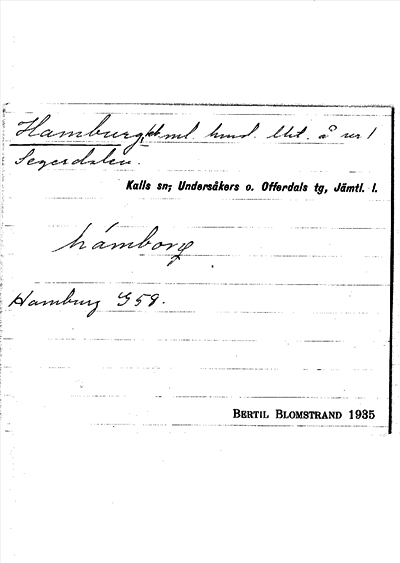 Hamburg, hml. hmd. lht. å nr 1
Segerdalen.
Kalls sn; Undersåkers o. Offerdals tg, Jämtl. l.
hámborg
Hamburg G59.
BERTIL BLOMSTRAND 1935